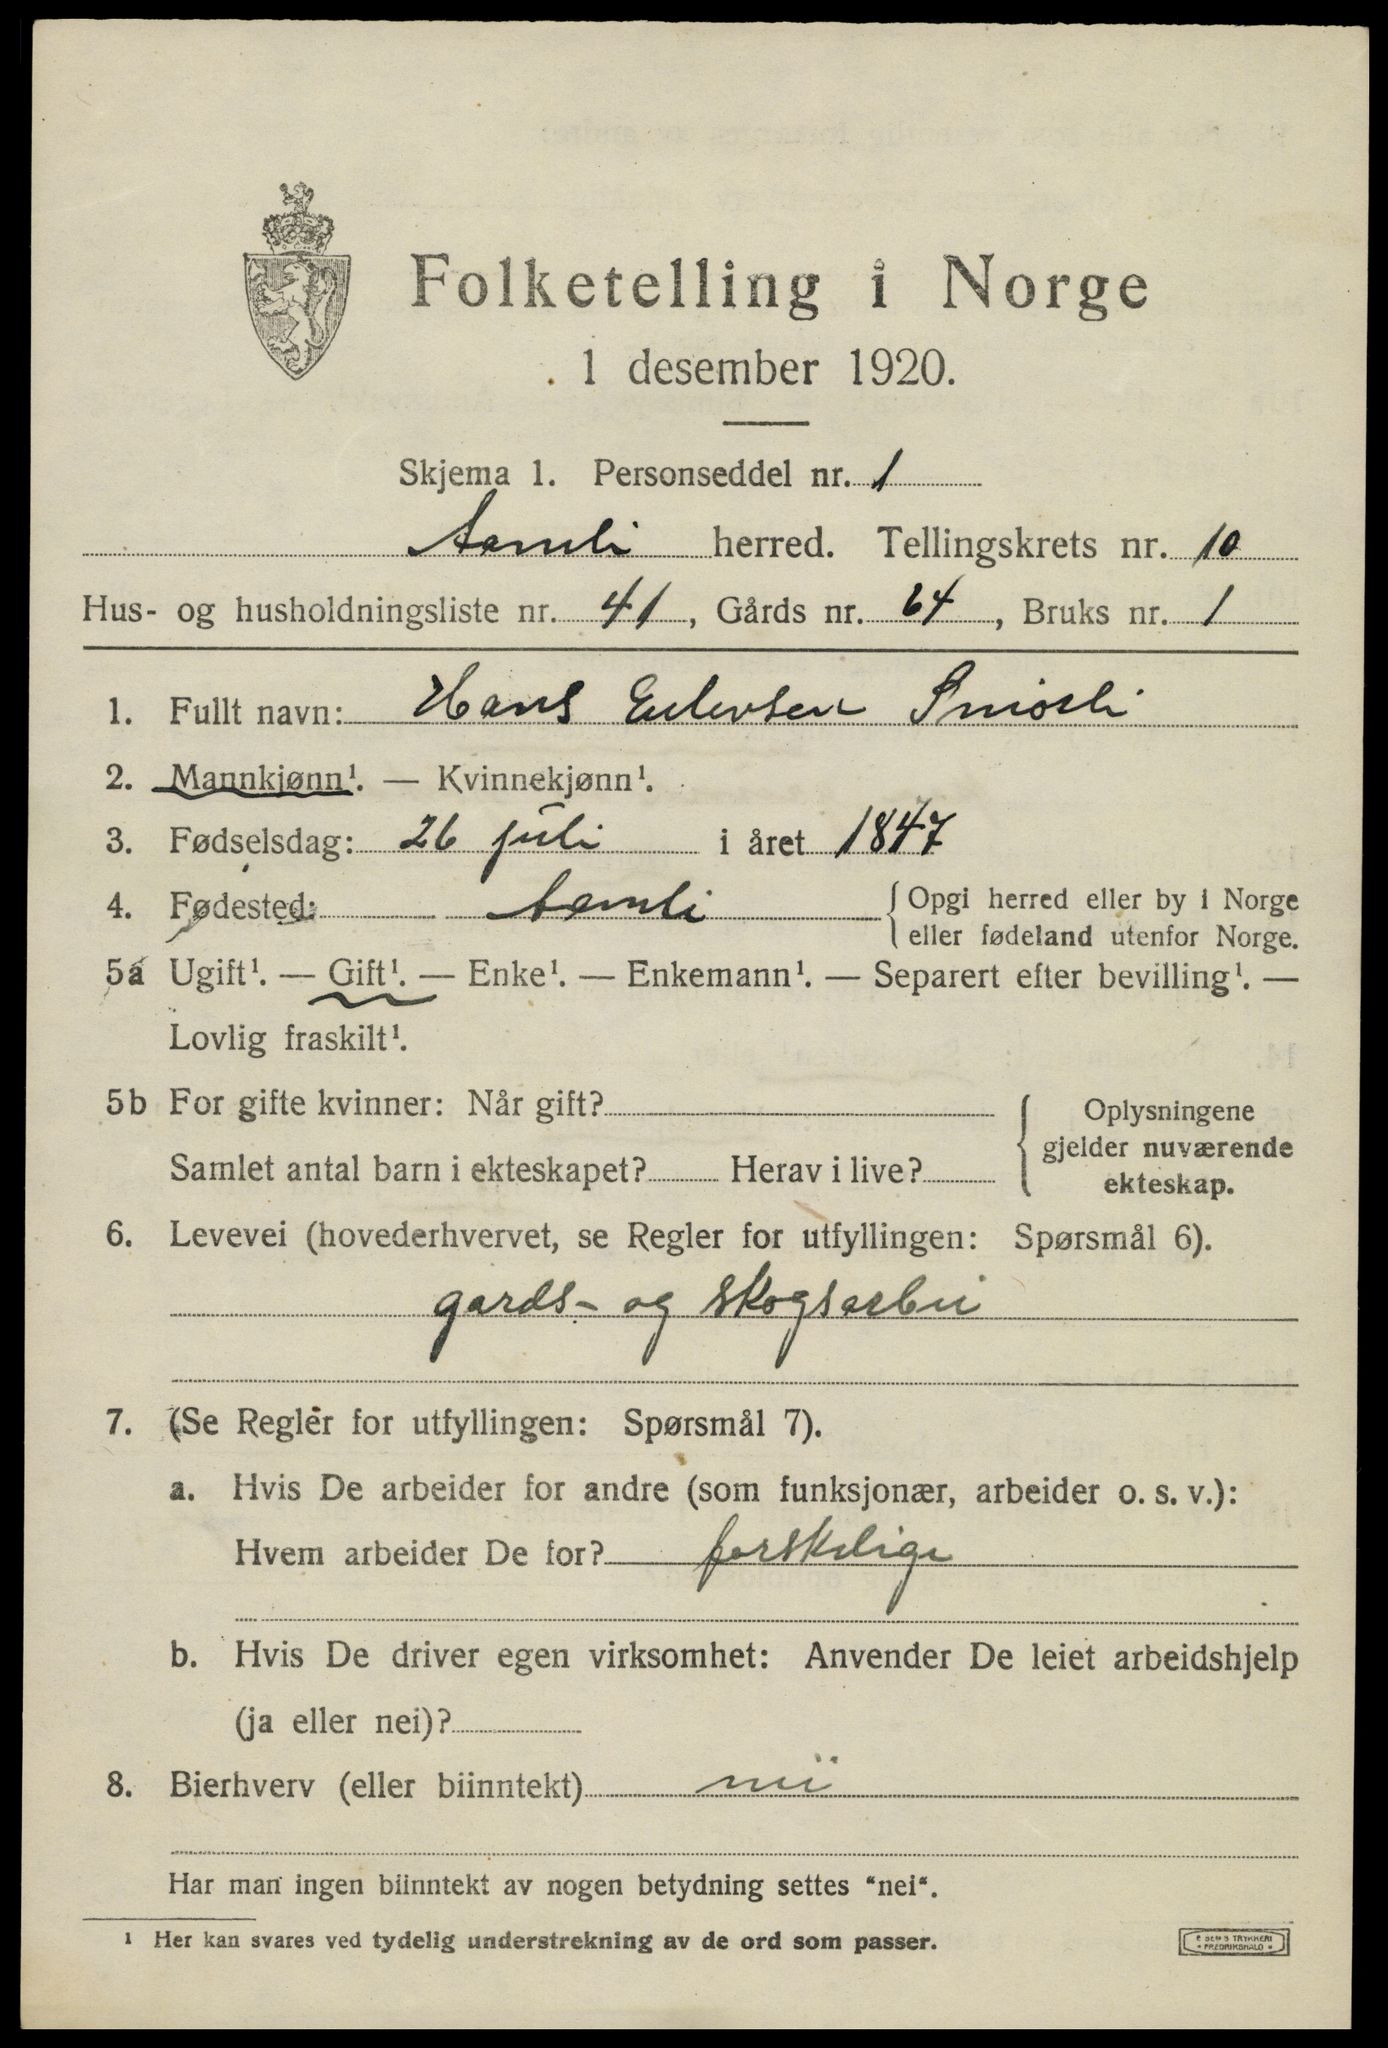 Folketelling i Norge
1 desember 1920.
Skjema 1. Personseddel nr. 1
Aamli herred. Tellingskrets nr. 10
Hus- og husholdningsliste nr. 41, Gårds nr. 64, Bruks nr. 1
1. Fullt navn: Hans Eilevsen Smiøsli
2. Mannkjønn¹. — Kvinnekjønn¹.
3. Fødselsdag: 26 juli i året 1847
4. Fødested: Aamli { Opgi herred eller by i Norge
eller fødeland utenfor Norge.
5a Ugift¹. — Gift¹. — Enke¹. — Enkemann¹. — Separert efter bevilling¹. —
Lovlig fraskilt¹.
5b For gifte kvinner: Når gift?
Samlet antal barn i ekteskapet? Herav i live?
Oplysningene
gjelder nuværende
ekteskap.
6. Levevei (hovederhvervet, se Regler for utfyllingen: Spørsmål 6).
gards- og skogsarbei
7. (Se Regler for utfyllingen: Spørsmål 7).
a. Hvis De arbeider for andre (som funksjonær, arbeider o. s. v.):
Hvem arbeider De for? forskelige
b. Hvis De driver egen virksomhet: Anvender De leiet arbeidshjelp
(ja eller nei)?
8. Bierhverv (eller biinntekt) nei
Har man ingen biinntekt av nogen betydning settes "nei".
¹ Her kan svares ved tydelig understrekning av de ord som passer.
E SEM'S TRYKKERI
FREDRIKSHALD